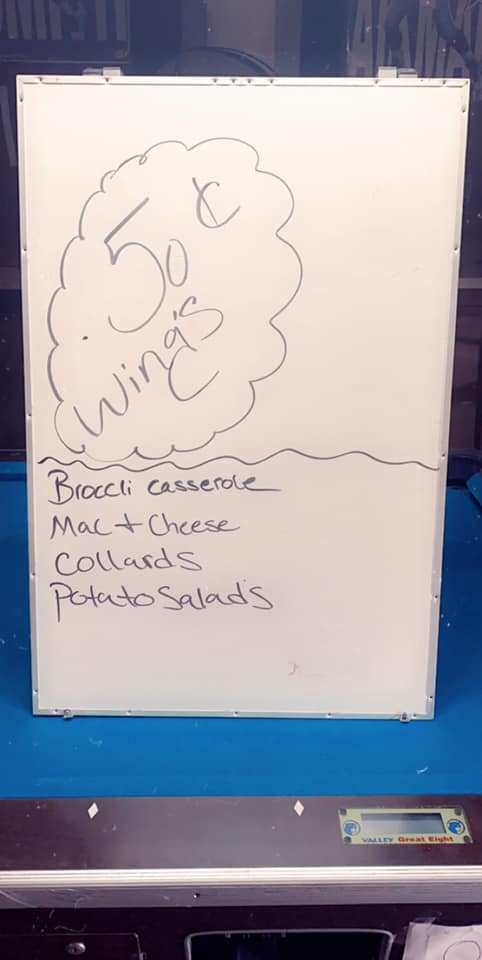 .50 ¢
wings
Broccli casserole
Mac + Cheese
Collards
Potato Salads
VALLEY Great Eight